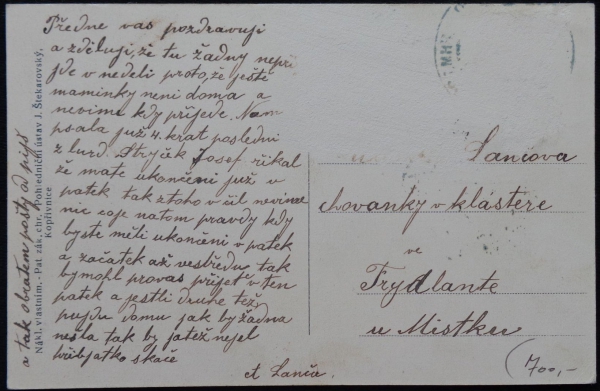 Předne vas pozdravuji
a zděluji, že tu žadny nepři
jde v nedeli proto, že ještě
maminky neni doma a
nevime kdy přijede. Nam
psala již 4. krat posledni
z lurd. Stryček Josef řikal
že mate ukončeni již v
patek tak z toho v čil nevime
nic co je natom pravdy kdy
byste měli ukončeni v patek
a začatek až ve středu tak
by mohl pro vas přijet v ten
patek a jestli druhe též
pujdu domu jak by žadna
nešla tak by jatež nejel
hřibjatko skače
A Lanča.
a tak obratem pošty od pipš
Nákl. vlastním. - Pat. zák. chr. Pohlednični ústav J. Štekarovský,
Kopřivnice
Lančova
chovanky v klášteře
ve
Frydlantě
u Mistku
700,-